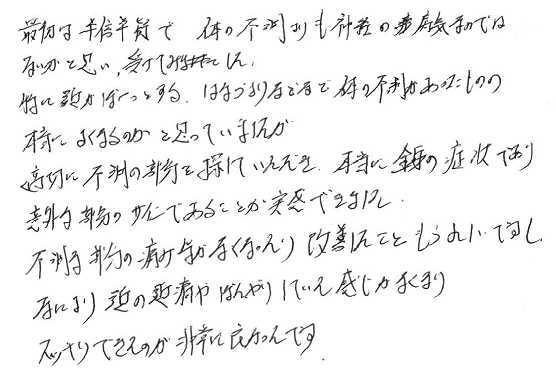 最初は半信半疑で 体の不調よりも神経の病気なのでは
ないかと思い、受けてみました。
特に頭がぼーっとする、はなづまりなどまで体の不調があったものの
本当によくなるのかと思っていましたが
適切に不調の部分を探していただき、本当に全身の症状であり
意外な部分のサインであることが実感できました。
不調な部分の痛みがなくなったり改善したこともうれしいですし、
なにより頭の頭痛やぼんやりしていた感じがなくなり
スッキリできたのが非常に良かったです。